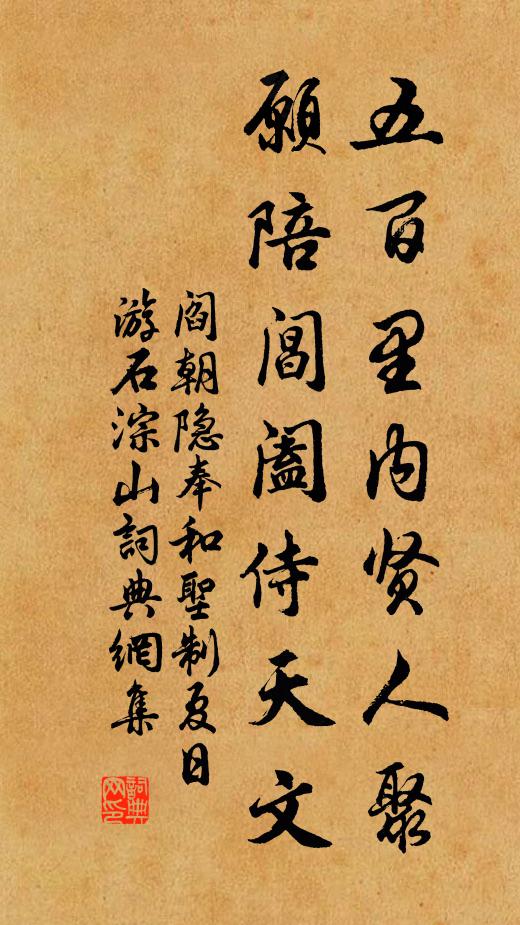 五百里内贤人聚
願陪閶阖侍天文
阎朝隐奉和聖制夏日
游石淙山詞典網集
詞典网印